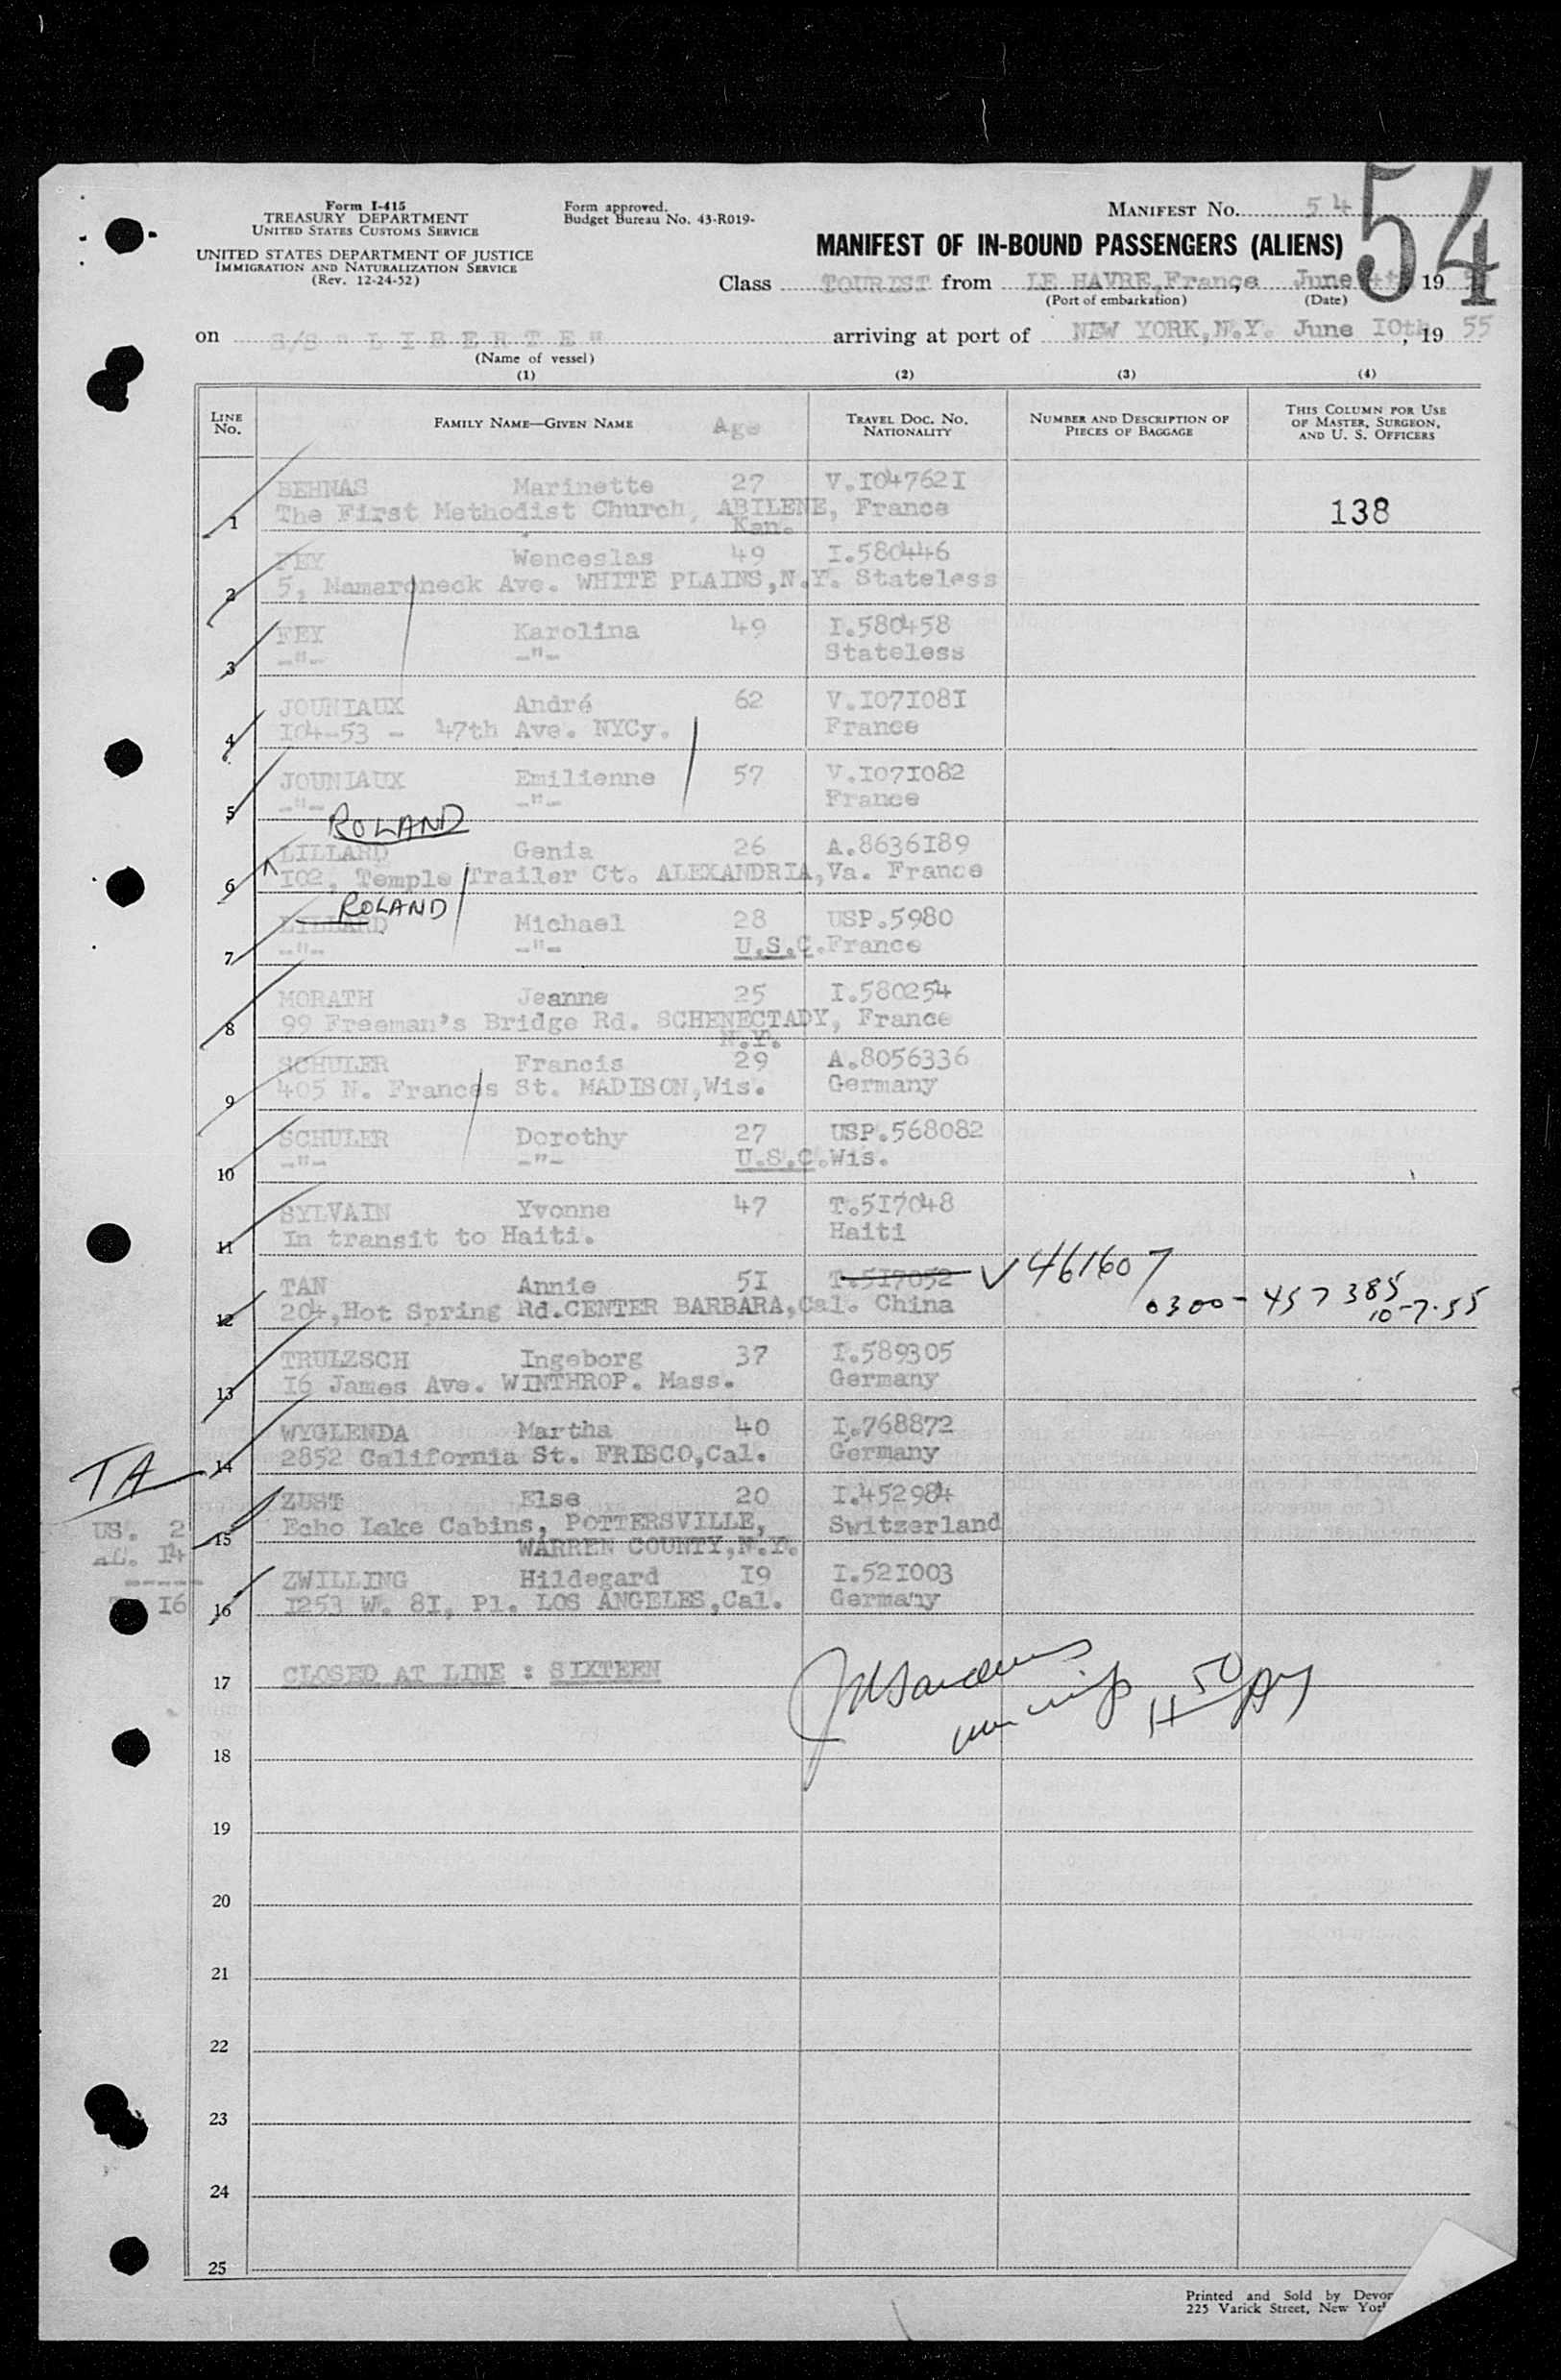 54
Form I-415
TREASURY DEPARTMENT
UNITED STATES CUSTOMS SERVICE
UNITED STATES DEPARTMENT OF JUSTICE
IMMIGRATION AND NATURALIZATION SERVICE
(Rev. 12-24-52)
Form approved.
Budget Bureau No. 43-R019-
MANIFEST No. 54
MANIFEST OF IN-BOUND PASSENGERS (ALIENS)
Class TOURIST from LE HAVRE, France, June 19
(Port of embarkation) (Date)
on S/S " L I B E R T E " arriving at port of NEW YORK, N.Y. June 10th, 19 55
(Name of vessel)
(1) (2) (3) (4)
LINE No. FAMILY NAME—GIVEN NAME Age TRAVEL DOC. NO. NATIONALITY NUMBER AND DESCRIPTION OF PIECES OF BAGGAGE THIS COLUMN FOR USE OF MASTER, SURGEON, AND U. S. OFFICERS
BEHNAS Marinette 27 V.1047621
1 The First Methodist Church, ABILENE, France 138
Kan.
FEY Wenceslas 49 I.580446
2 5, Mamaroneck Ave. WHITE PLAINS,N.Y. Stateless
FEY Karolina 49 I.580458
3 -"- -"- Stateless
JOUNIAUX André 62 V.1071081
4 104-53 - 47th Ave. NYCy. France
JOUNIAUX Emilienne 57 V.1071082
5 -"- -"- France
ROLAND
LILLARD Genia 26 A.8636189
6 102, Temple Trailer Ct. ALEXANDRIA,Va. France
ROLAND
LILLARD Michael 28 USP.5980
7 -"- -"- U.S.C. France
MORATH Jeanne 25 I.580254
8 99 Freeman's Bridge Rd. SCHENECTADY, France
N.Y.
SCHULER Francis 29 A.8056336
9 405 N. Frances St. MADISON,Wis. Germany
SCHULER Dorothy 27 USP.568082
10 -"- -"- U.S.C. Wis.
SYLVAIN Yvonne 47 T.517048
11 In transit to Haiti. Haiti
TAN Annie 51 T.517052 √ 461607
12 204,Hot Spring Rd.CENTER BARBARA,Cal. China 0300-457385
10-7-55
TRULZSCH Ingeborg 37 I.589305
13 16 James Ave. WINTHROP. Mass. Germany
WYGLENDA Martha 40 I.768872
TA 14 2852 California St. FRISCO,Cal. Germany
ZUST Else 20 I.452984
US. 2 15 Echo Lake Cabins, POTTERSVILLE, Switzerland
AL. 14 WARREN COUNTY,N.Y.
-----
ZWILLING Hildegard 19 I.521003
16 16 1253 W. 81, Pl. LOS ANGELES,Cal. Germany
17 CLOSED AT LINE : SIXTEEN
18
19
20
21
22
23
24
25
Printed and Sold by Devon
225 Varick Street, New York